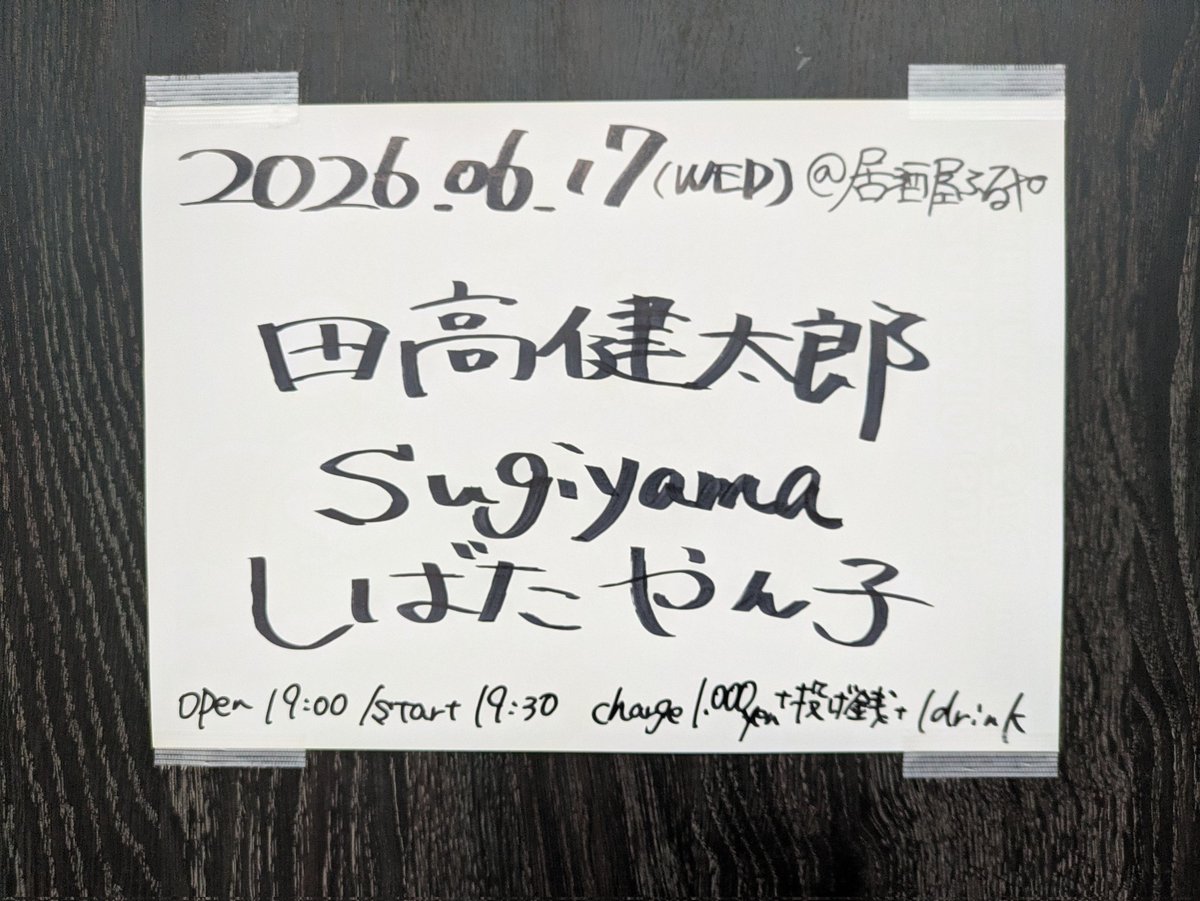 2026.06.17(WED) @居酒屋ふるや
田高健太郎
Sugiyama
しばたやん子
open 19:00 /start 19:30 charge 1.000yen+投げ銭+1drink